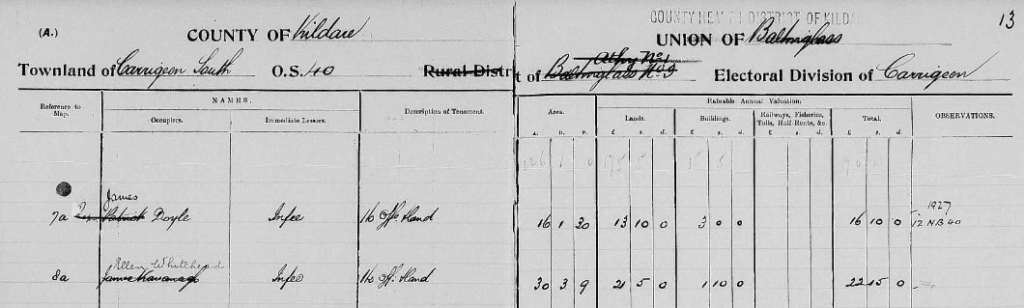 COUNTY HEALTH DISTRICT OF KILDA
13
(A.) COUNTY OF Kildare UNION OF Baltinglass
Athy No 1
Townland of Carrigeen South O.S. 40 Rural Distri t of Baltinglass No 3 Electoral Division of Carrigeen
Reference to Map. NAMES. Description of Tenement. Area. Rateable Annual Valuation. OBSERVATIONS.
Occupiers. Immediate Lessors. Lands. Buildings. Railways, Fisheries, Tolls, Half-Rents, &c. Total.
A. R. P. £ s. d. £ s. d. £ s. d. £ s. d.
James 1927
7a Patrick Doyle Infee Ho Offs Land 16 1 30 13 10 0 3 0 0 16 10 0 12 N.B 40
Ellen Whitehead
8a James Kavanagh Infee Ho Off. Land 30 3 9 21 5 0 1 10 0 22 15 0